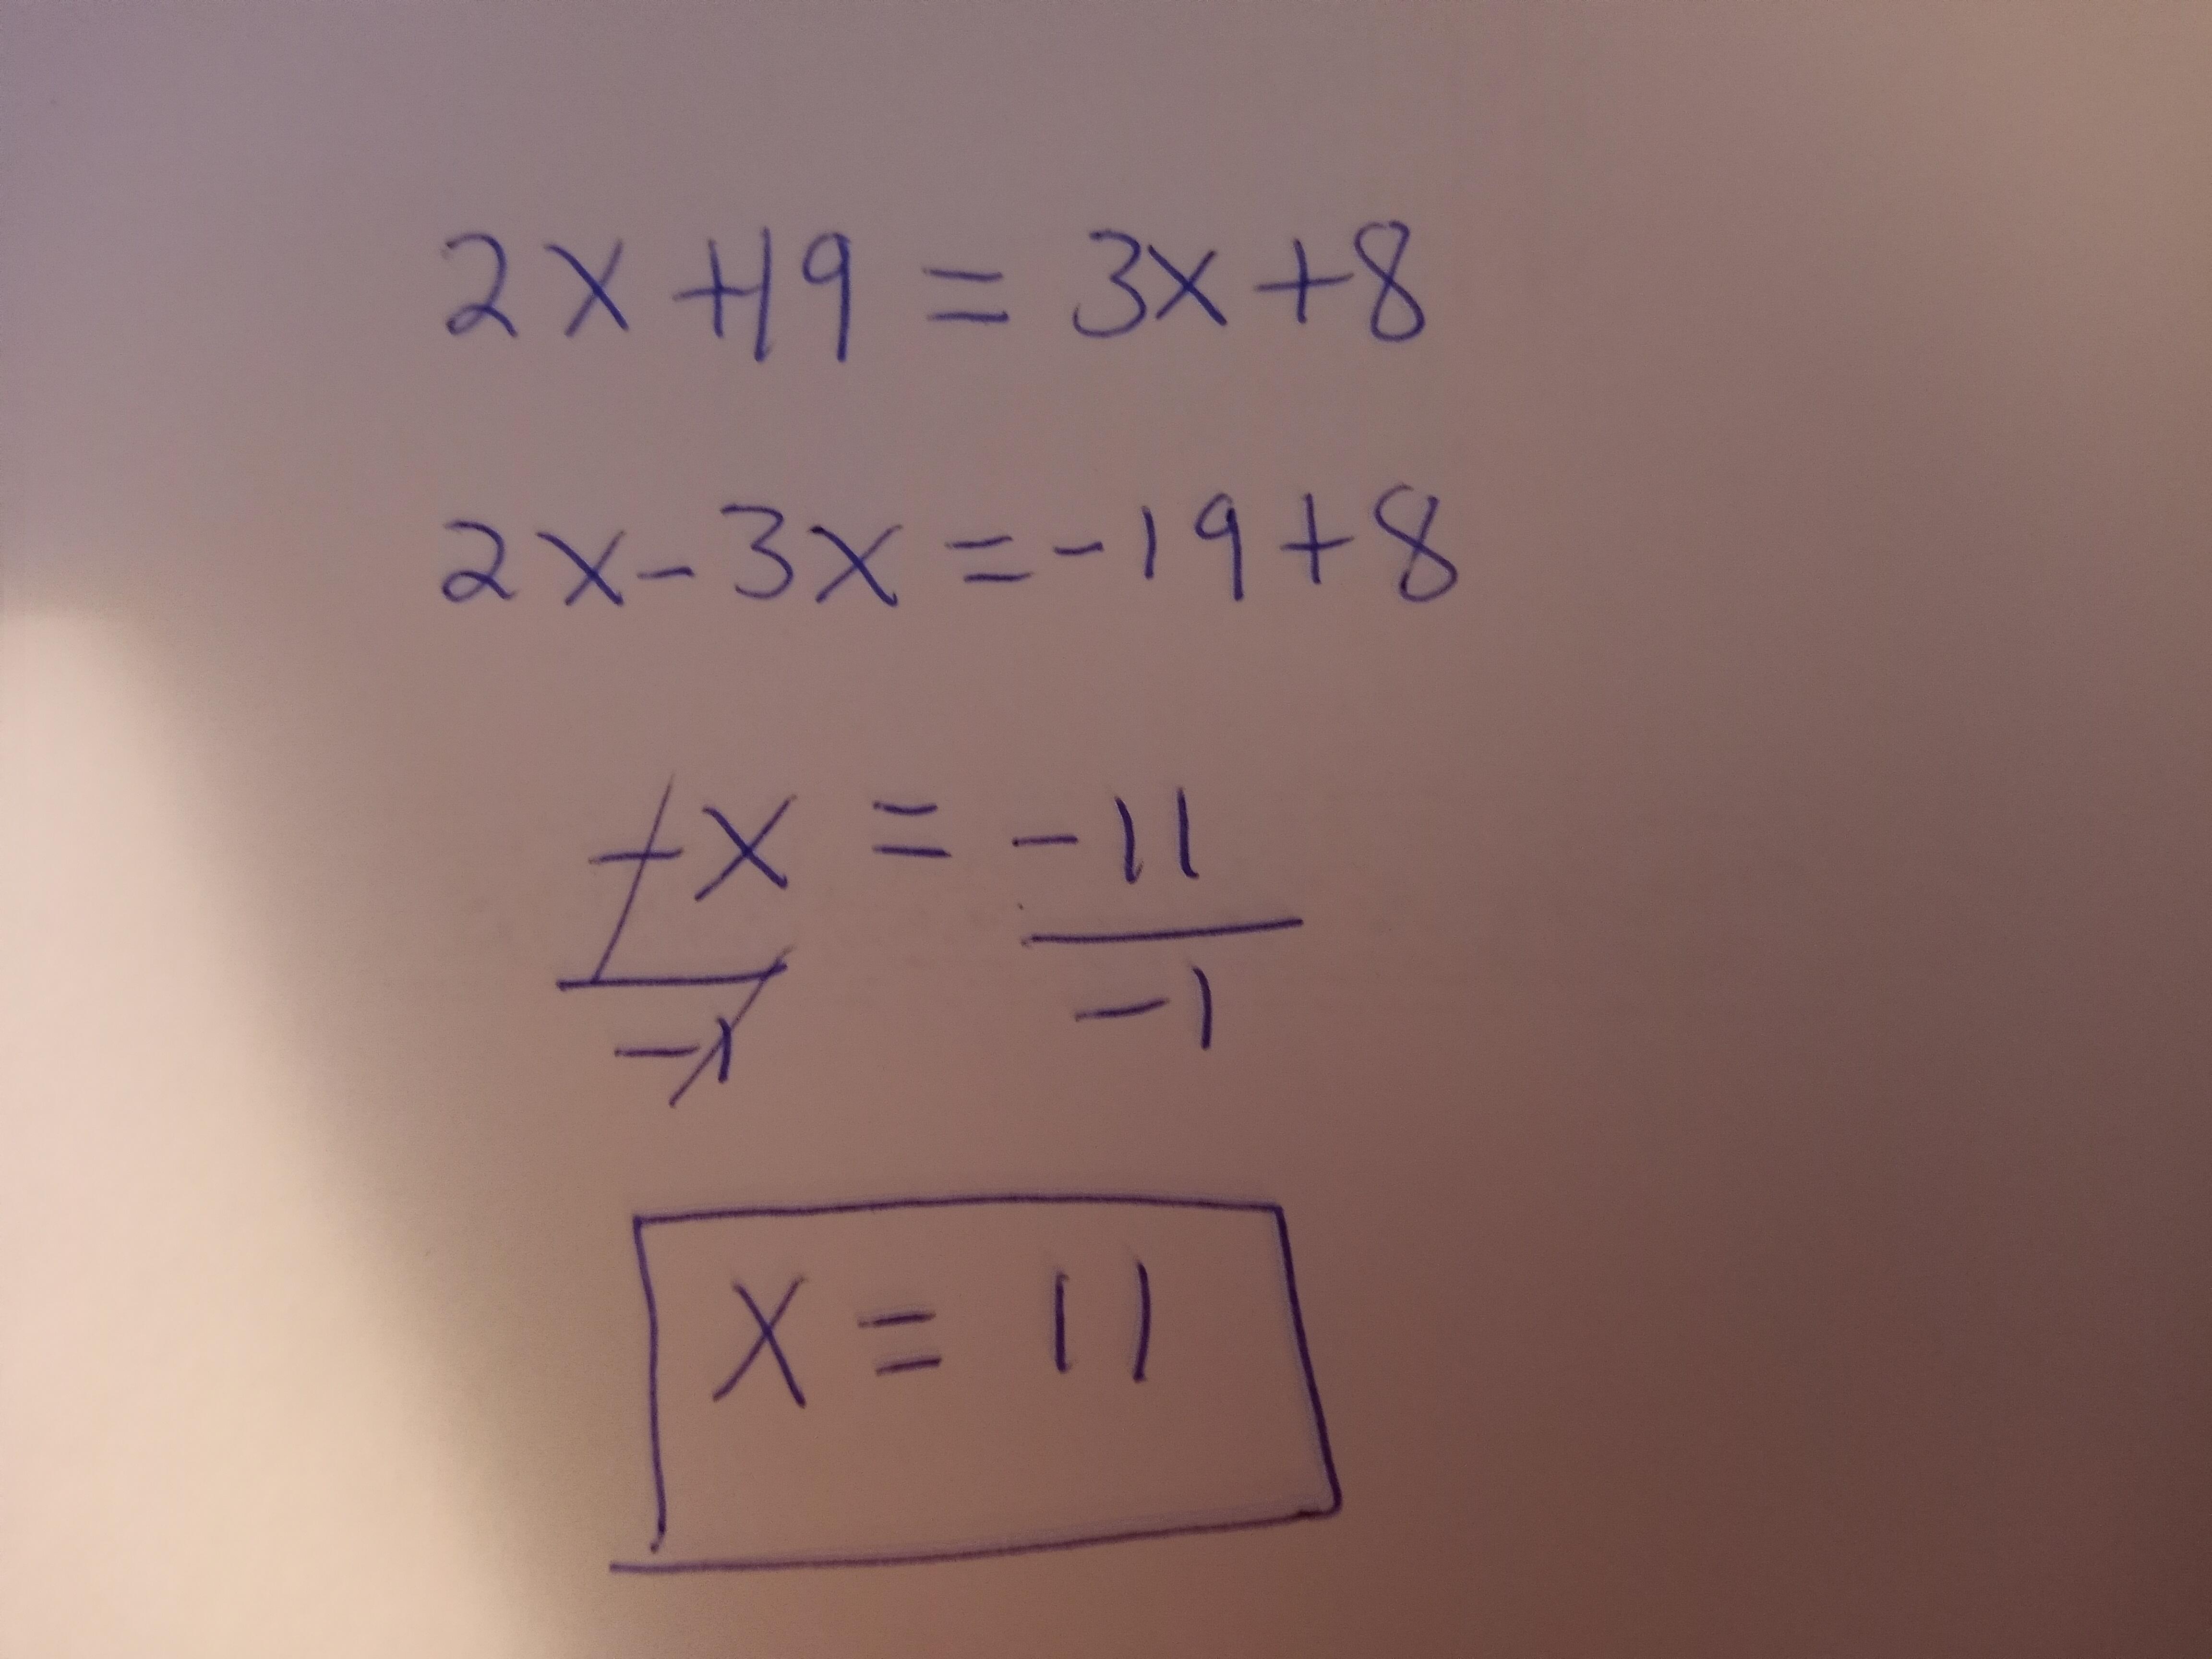 2x+19 = 3x+8
2x-3x = -19+8
-x = -11
-1 -1
x = 11